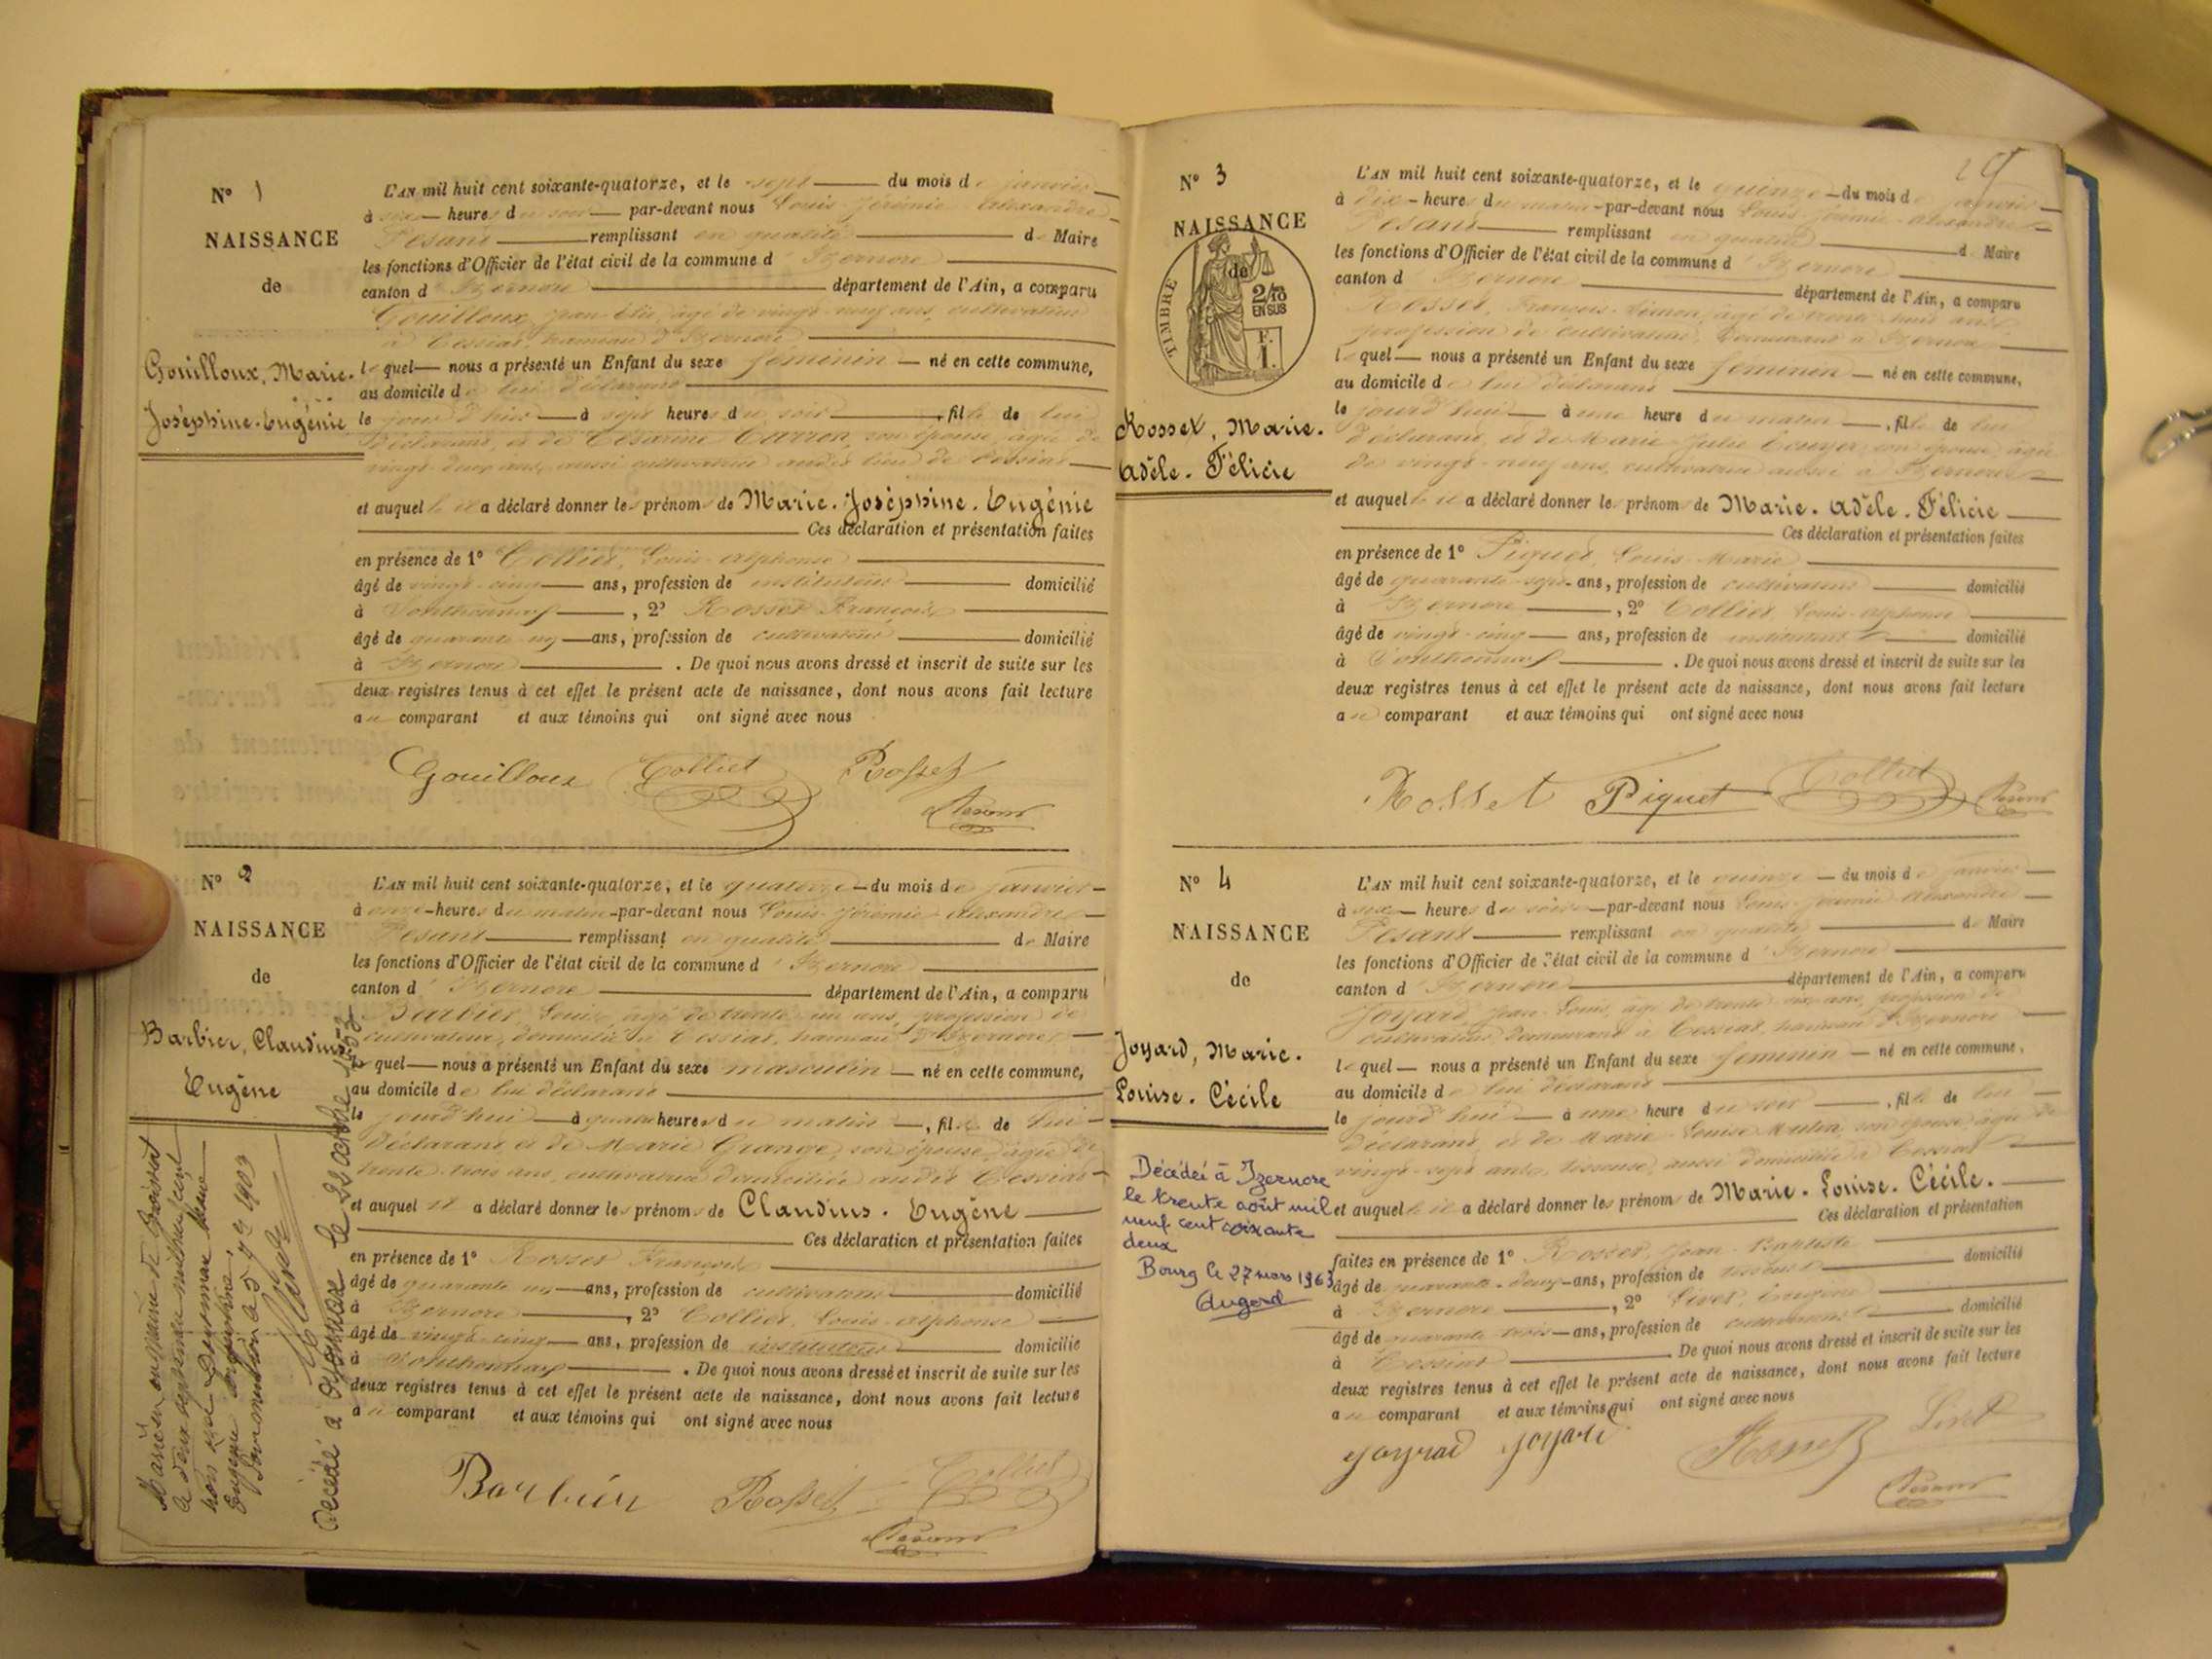 N° 1
NAISSANCE
de
Gouilloux, Marie.
Joséphine-Eugénie
L'AN mil huit cent soixante-quatorze, et le sept du mois de janvier
à six heures du soir par-devant nous Louis-Jérémie-Alexandre
Pesant remplissant en qualité de Maire
les fonctions d'Officier de l'état civil de la commune d'Izernore
canton d'Izernore département de l'Ain, a comparu
Gouilloux, Jean Elie, âgé de vingt-neuf ans, cultivateur
à Cessiat, hameau d'Izernore
lequel nous a présenté un Enfant du sexe féminin né en cette commune,
au domicile de lui déclarant
le jour d'hier à sept heures du soir, fille de lui
déclarant, et de Césarine Carron, son épouse, âgée de
vingt-deux ans, aussi cultivatrice audit lieu de Cessiat
et auquel il a déclaré donner les prénoms de Marie. Joséphine. Eugénie
Ces déclaration et présentation faites
en présence de 1° Colliet, Louis-Alphonse
âgé de vingt-cinq ans, profession de instituteur domicilié
à , 2° Rosset François
âgé de quarante un ans, profession de cultivateur domicilié
à Izernore. De quoi nous avons dressé et inscrit de suite sur les
deux registres tenus à cet effet le présent acte de naissance, dont nous avons fait lecture
au comparant et aux témoins qui ont signé avec nous
Gouilloux Colliet Rosset
Pesant
N° 2
NAISSANCE
de
Barbier, Claudius
Eugène
L'AN mil huit cent soixante-quatorze, et le quatorze du mois de janvier
à onze heures du matin par-devant nous Louis-Jérémie-Alexandre
Pesant remplissant en qualité de Maire
les fonctions d'Officier de l'état civil de la commune d'Izernore
canton d'Izernore département de l'Ain, a comparu
Barbier, Louis, âgé de trente-un ans, profession de
cultivateur, domicilié à Cessiat, hameau d'Izernore
lequel nous a présenté un Enfant du sexe masculin né en cette commune,
au domicile de lui déclarant
le jourd'hui à quatre heures du matin, fils de lui
déclarant et de Marie Grange, son épouse, âgée de
trente-trois ans, cultivatrice domiciliée audit Cessiat
et auquel il a déclaré donner les prénoms de Claudius. Eugène
Ces déclaration et présentation faites
en présence de 1° Rosset François
âgé de quarante un ans, profession de cultivateur domicilié
à Izernore, 2° Colliet, Louis-Alphonse
âgé de vingt-cinq ans, profession de instituteur domicilié
à . De quoi nous avons dressé et inscrit de suite sur les
deux registres tenus à cet effet le présent acte de naissance, dont nous avons fait lecture
au comparant et aux témoins qui ont signé avec nous
Barbier Rosset Colliet
Pesant
Décédé à Oyonnax le 22
N° 3
NAISSANCE
de
TIMBRE
2/10
EN SUS
F.
1.
Rosset, Marie.
Adèle. Félicie
L'AN mil huit cent soixante-quatorze, et le quinze du mois de janvier
à dix heures du matin par-devant nous Louis-Jérémie-Alexandre
Pesant remplissant en qualité de Maire
les fonctions d'Officier de l'état civil de la commune d'Izernore
canton d'Izernore département de l'Ain, a comparu
Rosset, François-Simon, âgé de trente-huit ans,
profession de cultivateur, demeurant à Izernore
lequel nous a présenté un Enfant du sexe féminin né en cette commune,
au domicile de lui déclarant
le jourd'hui à une heure du matin, fille de lui
déclarant, et de Marie-Julie son épouse, âgée
de vingt-neuf ans, cultivatrice aussi à Izernore
et auquel il a déclaré donner les prénoms de Marie. Adèle. Félicie
Ces déclaration et présentation faites
en présence de 1° Piquet, Louis-Marie
âgé de quarante-sept ans, profession de cultivateur domicilié
à Izernore, 2° Colliet, Louis-Alphonse
âgé de vingt-cinq ans, profession de instituteur domicilié
à . De quoi nous avons dressé et inscrit de suite sur les
deux registres tenus à cet effet le présent acte de naissance, dont nous avons fait lecture
au comparant et aux témoins qui ont signé avec nous
Rosset Piquet Colliet Pesant
N° 4
NAISSANCE
de
Joyard, Marie.
Louise. Cécile
Décédée à Izernore
le trente août mil
neuf cent soixante
deux
Bourg le 27 mars 1963
L'AN mil huit cent soixante-quatorze, et le quinze du mois de janvier
à six heures du soir par-devant nous Louis-Jérémie-Alexandre
Pesant remplissant en qualité de Maire
les fonctions d'Officier de l'état civil de la commune d'Izernore
canton d'Izernore département de l'Ain, a comparu
Joyard, Jean-Louis, âgé de trente-six ans, profession de
cultivateur demeurant à Cessiat, hameau d'Izernore
lequel nous a présenté un Enfant du sexe féminin né en cette commune,
au domicile de lui déclarant
le jourd'hui à une heure du soir, fille de lui
déclarant, et de Marie-Louise son épouse âgée de
vingt-sept ans, aussi domiciliée à Cessiat
et auquel il a déclaré donner les prénoms de Marie. Louise. Cécile.
Ces déclaration et présentation
faites en présence de 1° Rosset, Jean-Baptiste domicilié
âgé de quarante-deux ans, profession de
à Izernore, 2° Livet, Eugène
âgé de quarante-trois ans, profession de cultivateur domicilié
à Cessiat De quoi nous avons dressé et inscrit de suite sur les
deux registres tenus à cet effet le présent acte de naissance, dont nous avons fait lecture
au comparant et aux témoins qui ont signé avec nous
Joyard Rosset Livet
Pesant